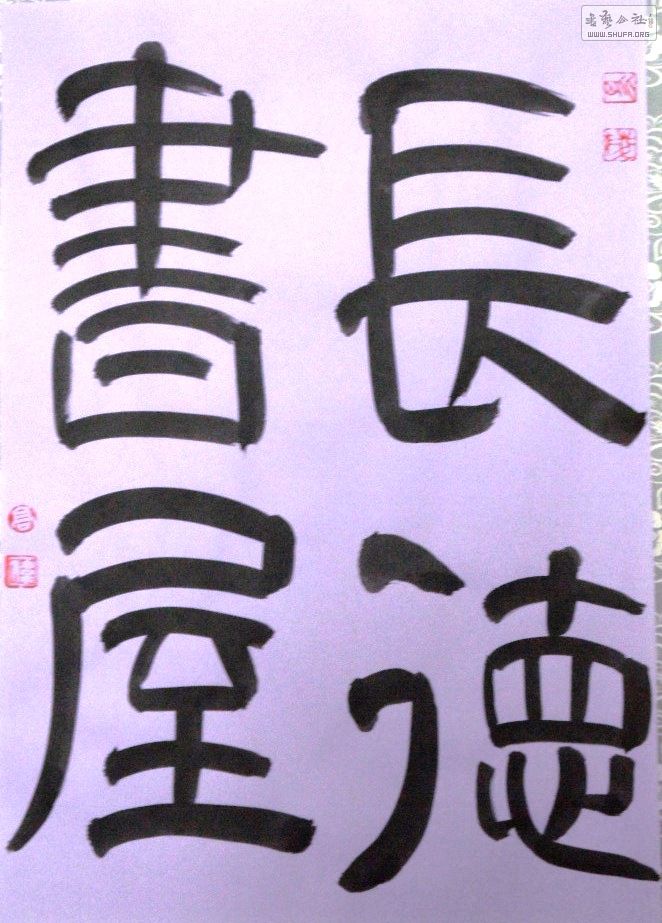 長德
書屋
書藝公社
WWW.SHUFA.ORG